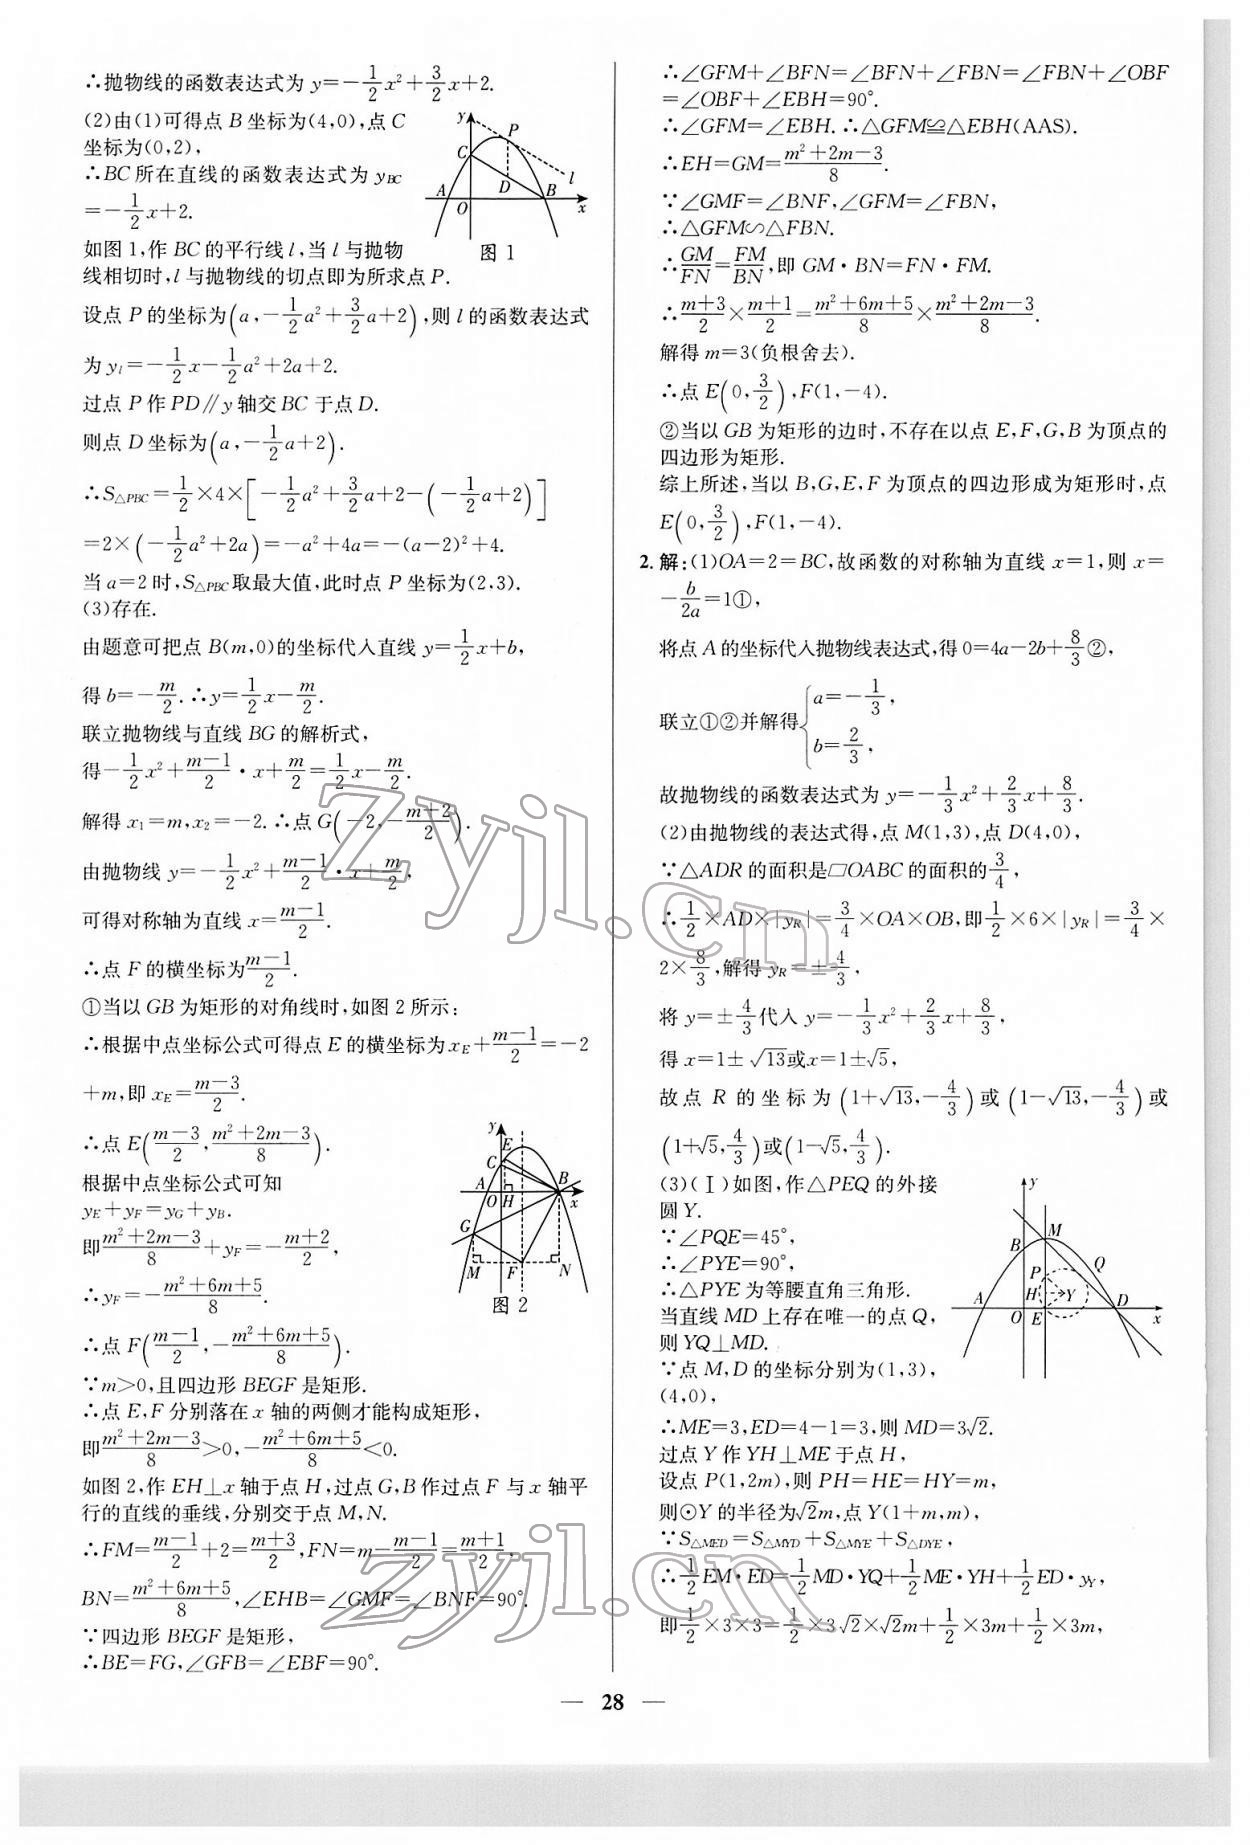 ∴抛物线的函数表达式为 y=-1/2x²+3/2x+2.
(2)由(1)可得点 B 坐标为(4,0),点 C
坐标为(0,2),
∴BC所在直线的函数表达式为 y_BC
=-1/2x+2.
如图1,作 BC 的平行线 l,当 l 与抛物
线相切时,l 与抛物线的切点即为所求点 P.
y P C l A D B O x
图1
设点 P 的坐标为(a,-1/2a²+3/2a+2),则 l 的函数表达式
为 y_l=-1/2x-1/2a²+2a+2.
过点 P 作 PD∥y 轴交 BC 于点 D.
则点 D 坐标为(a,-1/2a+2).
∴S△PBC=1/2×4×[-1/2a²+3/2a+2-(-1/2a+2)]
=2×(-1/2a²+2a)=-a²+4a=-(a-2)²+4.
当 a=2 时,S△PBC取最大值,此时点 P 坐标为(2.3).
(3)存在.
由题意可把点 B(m,0)的坐标代入直线 y=1/2x+b,
得 b=-m/2. ∴y=1/2x-m/2.
联立抛物线与直线 BG 的解析式,
得-1/2x²+(m-1)/2·x+m/2=1/2x-m/2.
解得 x₁=m,x₂=-2. ∴点 G(-2,-(m+2)/2).
由抛物线 y=-1/2x²+(m-1)/2·x+m/2,
可得对称轴为直线 x=(m-1)/2.
∴点 F 的横坐标为(m-1)/2.
①当以 GB 为矩形的对角线时,如图 2 所示:
∴根据中点坐标公式可得点 E 的横坐标为 x_E+(m-1)/2=-2
+m,即 x_E=(m-3)/2.
∴点 E((m-3)/2,(m²+2m-3)/8).
根据中点坐标公式可知
y_E+y_F=y_G+y_B.
即(m²+2m-3)/8+y_F=-(m+2)/2,
∴y_F=-(m²+6m+5)/8.
y E C A B O H x G M F N
图2
∴点 F((m-1)/2,-(m²+6m+5)/8).
∵m>0,且四边形 BEGF 是矩形.
∴点 E,F 分别落在 x 轴的两侧才能构成矩形,
即(m²+2m-3)/8>0,-(m²+6m+5)/8<0.
如图 2,作 EH⊥x 轴于点 H,过点 G,B 作过点 F 与 x 轴平
行的直线的垂线,分别交于点 M,N.
∴FM=(m-1)/2+2=(m+3)/2,FN=m-(m-1)/2=(m+1)/2,
BN=(m²+6m+5)/8,∠EHB=∠GMF=∠BNF=90°.
∵四边形 BEGF 是矩形,
∴BE=FG,∠GFB=∠EBF=90°.
∴∠GFM+∠BFN=∠BFN+∠FBN=∠FBN+∠OBF
=∠OBF+∠EBH=90°.
∴∠GFM=∠EBH. ∴△GFM≌△EBH(AAS).
∴EH=GM=(m²+2m-3)/8.
∵∠GMF=∠BNF,∠GFM=∠FBN,
∴△GFM∽△FBN.
∴GM/FN=FM/BN,即 GM·BN=FN·FM.
∴(m+3)/2×(m+1)/2=(m²+6m+5)/8×(m²+2m-3)/8.
解得 m=3(负根舍去).
∴点 E(0,3/2),F(1,-4).
②当以 GB 为矩形的边时,不存在以点 E,F,G,B 为顶点的
四边形为矩形.
综上所述,当以 B,G,E,F 为顶点的四边形成为矩形时,点
E(0,3/2),F(1,-4).
2.解:(1)OA=2=BC,故函数的对称轴为直线 x=1,则 x=
-b/2a=1①,
将点 A 的坐标代入抛物线表达式,得 0=4a-2b+8/3②,
联立①②并解得{a=-1/3, b=2/3,
故抛物线的函数表达式为 y=-1/3x²+2/3x+8/3.
(2)由抛物线的表达式得,点 M(1,3),点 D(4,0),
∵△ADR 的面积是▱OABC 的面积的3/4,
∴1/2×AD×|y_R|=3/4×OA×OB,即1/2×6×|y_R|=3/4×
2×8/3,解得 y_R=±4/3,
将 y=±4/3代入 y=-1/3x²+2/3x+8/3,
得 x=1±√13或x=1±√5,
故点 R 的坐标为(1+√13,-4/3)或(1-√13,-4/3)或
(1+√5,4/3)或(1-√5,4/3).
(3)(Ⅰ)如图,作△PEQ 的外接
圆Y.
∵∠PQE=45°,
∴∠PYE=90°,
∴△PYE 为等腰直角三角形.
当直线 MD 上存在唯一的点 Q,
则 YQ⊥MD.
∵点 M,D 的坐标分别为(1,3),
(4,0),
y M B Q P H Y A O E D x
∴ME=3,ED=4-1=3,则 MD=3√2.
过点 Y 作 YH⊥ME 于点 H,
设点 P(1,2m),则 PH=HE=HY=m,
则⊙Y 的半径为√2m,点 Y(1+m,m),
∵S△MED=S△MYD+S△MYE+S△DYE,
∴1/2EM·ED=1/2MD·YQ+1/2ME·YH+1/2ED·y_Y,
即1/2×3×3=1/2×3√2×√2m+1/2×3m+1/2×3m,
28
zyjl.cn
zyjl.cn